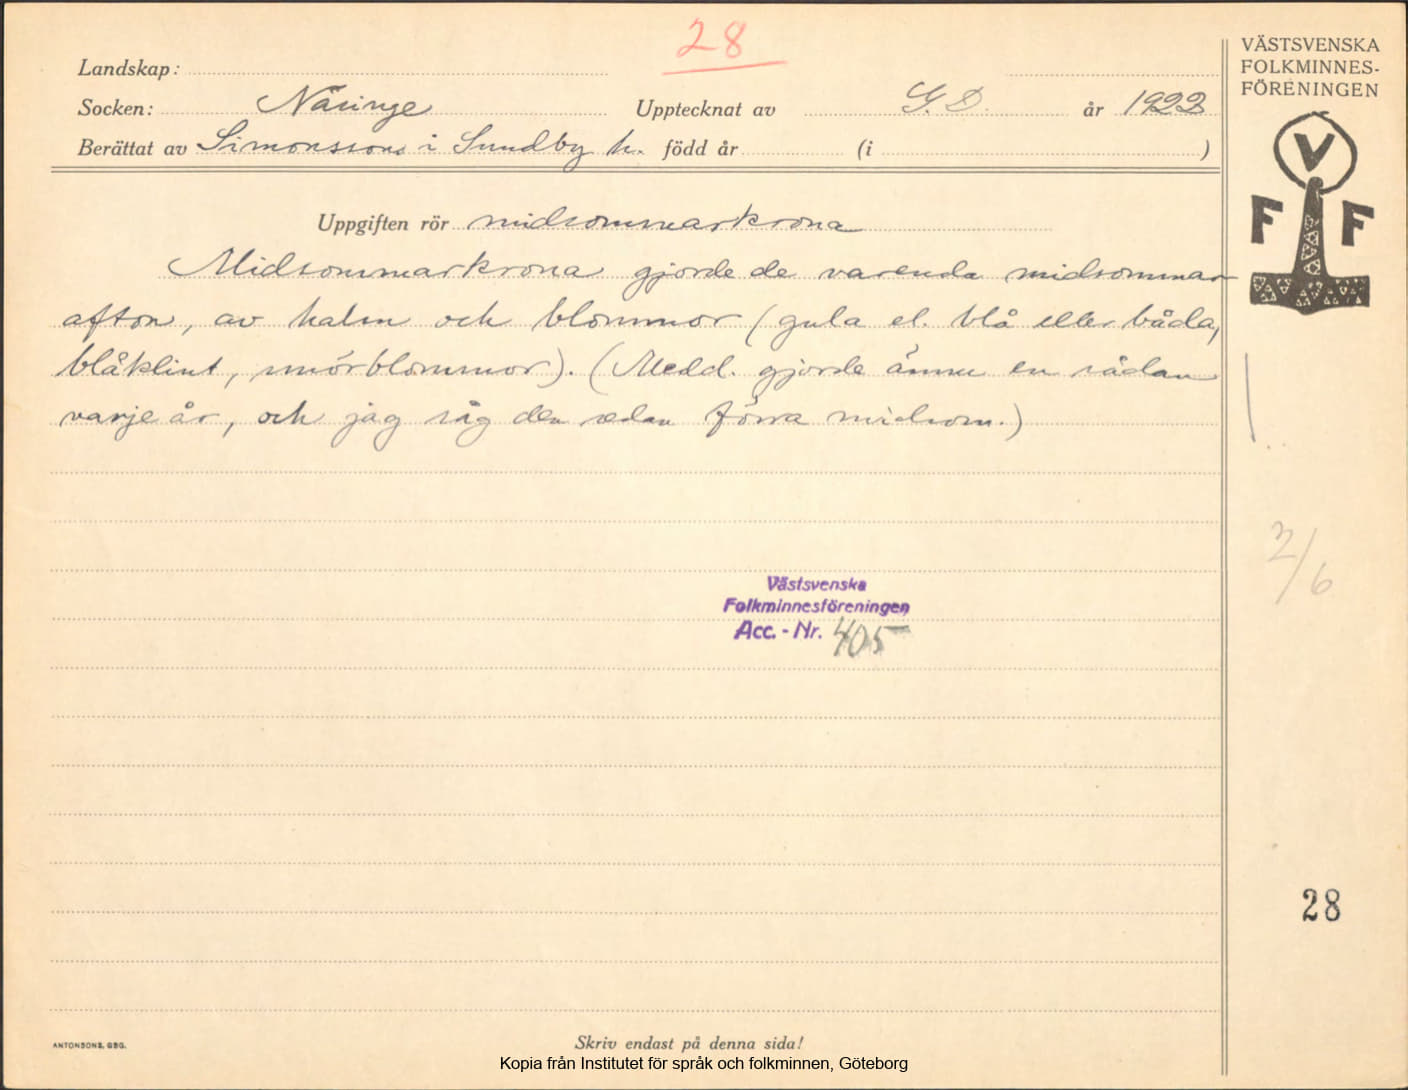 28
VÄSTSVENSKA
FOLKMINNES-
FÖRENINGEN
V
F F
Landskap:
Socken: Näsinge Upptecknat av G. D. år 1922
Berättat av Simonssons i Sundby h. född år (i )
Uppgiften rör midsommarkrona
Midsommarkrona gjorde de varenda midsommar
afton, av halm och blommor (gula el. blå eller båda,
blåklint, smörblommor). (Medd. gjorde ännu en sådan
varje år, och jag såg den sedan förra midsom.)
2/6
Västsvenska
Folkminnesföreningen
Acc. - Nr. 405
28
ANTONSONS, GBG.
Skriv endast på denna sida!
Kopia från Institutet för språk och folkminnen, Göteborg